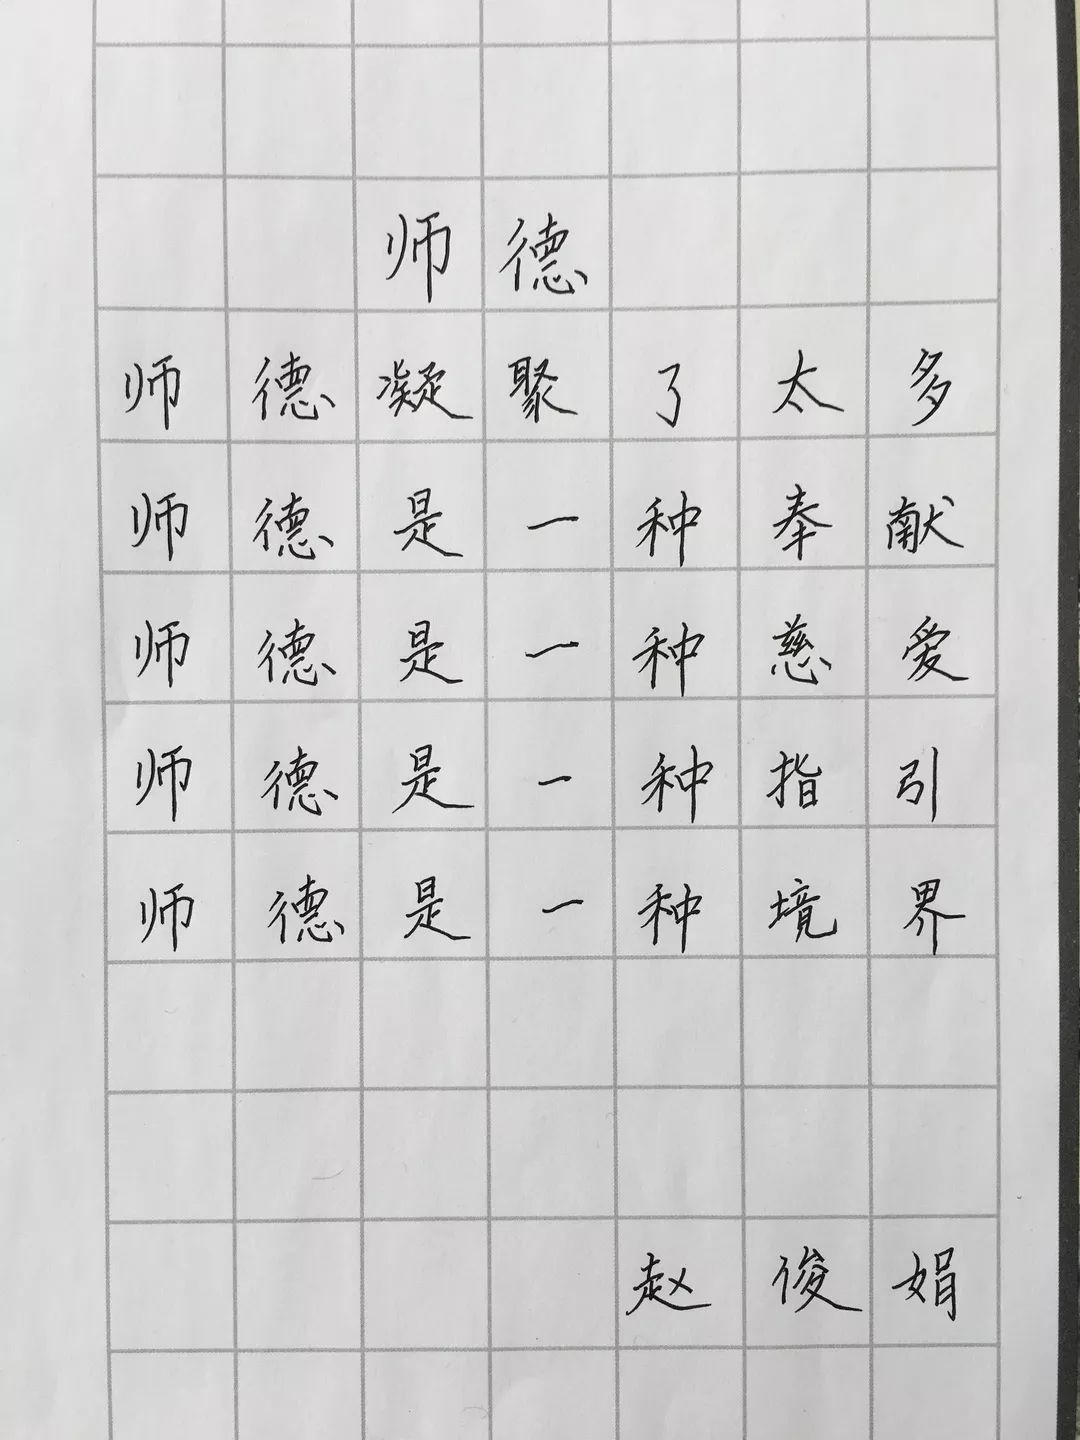 师德
师德凝聚了太多
师德是一种奉献
师德是一种慈爱
师德是一种指引
师德是一种境界
赵俊娟